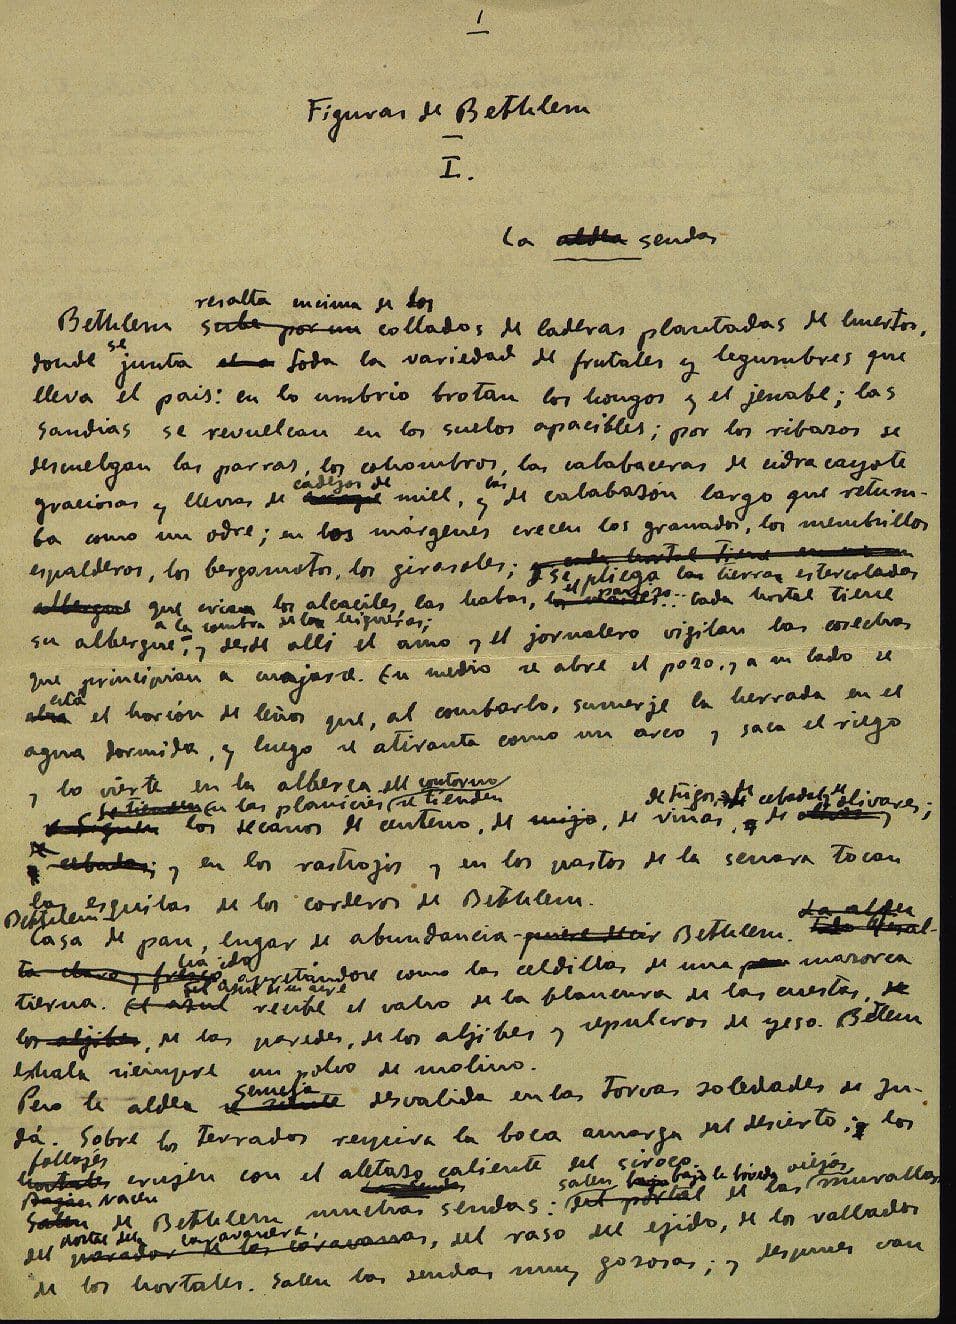 1
Figuras de Bethlem
I.
La aldea sendas
resalta encima de los
Bethlem sube por un collados de laderas plantadas de huertos,
donde se junta toda la variedad de frutales y legumbres que
lleva el pais: en lo umbrio brotan los hongos y el jenabe; las
sandias se revuelcan en los suelos apacibles; por los ribazos se
descuelgan las parras, los cohombros, las calabaceras de cidracayote
cadejos de
graciosas y llenas de miel, y las de calabazón largo que retum-
ba como un odre; en los márgenes crecen los granados, los membrillos
espalderos, los bergamotos, los girasoles; cada hortal tiene
y se pliega la tierra estercolada
albergue que crian los alcaciles, las habas, el panizo... Cada hortal tiene
a la sombra de las higueras;
su albergue, y desde alli el amo y el jornalero vigilan las cosechas
que principian a cuajarse. En medio se abre el pozo, y a un lado se
está
el horcón de leños que, al combarlo, sumerje la herrada en el
agua dormida, y luego se atiranta como un arco y saca el riego
y lo vierte en la alberca del contorno
Se tienden en las planicies se tienden
de trigos, de cebadas, de olivares;
los secanos de centeno, de mijo, de viñas, de olivos y
cebada; y en los rastrojos y en los pastos de la senara tocan
las esquilas de los corderos de Bethlem.
Bethlem
Casa de pan, lugar de abundancia quiere decir Bethlem. La aldea
toda resal-
ta clara y fresca ha ido apretándose como las celdillas de una mazorca
del azul de su aire
tierna. El azul recibe el vaho de la blancura de las cuestas, de
los aljibes, de las paredes, de los aljibes y sepulcros de yeso. Betlem
exhala siempre un polvo de molino.
semeja
Pero la aldea se siente desvalida en las torvas soledades de Ju-
dá. Sobre los terrados respira la boca amarga del desierto; y los
follajes
hortales crujen con el aletazo caliente del siroco.
nacen
salen bajo la bóveda
viejas
Salen de Bethlem muchas sendas: del portal de las murallas,
caravanera,
del parador de las caravanas, del raso del ejido, de los vallados
de los hortales. Salen las sendas muy gozosas; y despues van